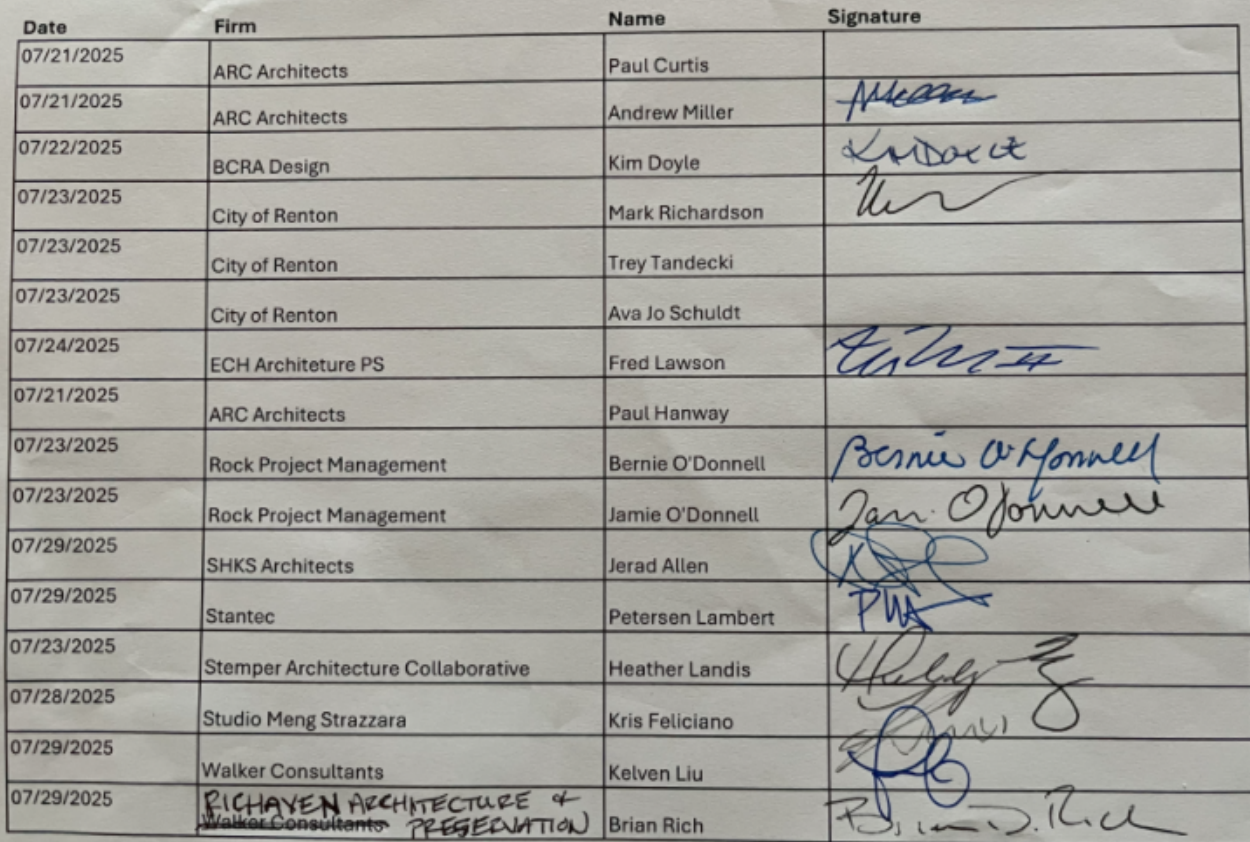 Date Firm Name Signature
07/21/2025 ARC Architects Paul Curtis
07/21/2025 ARC Architects Andrew Miller
07/22/2025 BCRA Design Kim Doyle
07/23/2025 City of Renton Mark Richardson
07/23/2025 City of Renton Trey Tandecki
07/23/2025 City of Renton Ava Jo Schuldt
07/24/2025 ECH Architeture PS Fred Lawson
07/21/2025 ARC Architects Paul Hanway
07/23/2025 Rock Project Management Bernie O'Donnell Bernie O'Donnell
07/23/2025 Rock Project Management Jamie O'Donnell
07/29/2025 SHKS Architects Jerad Allen
07/29/2025 Stantec Petersen Lambert
07/23/2025 Stemper Architecture Collaborative Heather Landis
07/28/2025 Studio Meng Strazzara Kris Feliciano
07/29/2025 Walker Consultants Kelven Liu
07/29/2025 RICHAVEN ARCHITECTURE &
Walker Consultants PRESERVATION Brian Rich Brian D. Rich